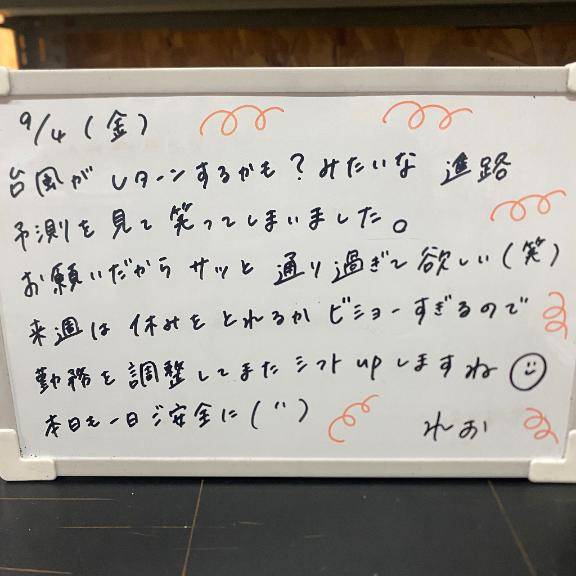 9/4(金)
台風がUターンするかも?みたいな 進路
予測を見て笑ってしまいました。
お願いだから サッと 通り過ぎて欲しい(笑)
来週は 休みをとれるか ビミョーすぎるので
勤務を調整してまたシフトupしますね
本日も一日ご安全に(¨)
れお